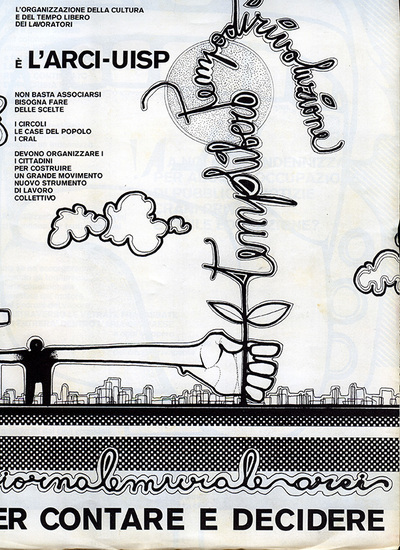 L'ORGANIZZAZIONE DELLA CULTURA
E DEL TEMPO LIBERO
DEI LAVORATORI
È L'ARCI-UISP
NON BASTA ASSOCIARSI
BISOGNA FARE
DELLE SCELTE
I CIRCOLI
LE CASE DEL POPOLO
I CRAL
DEVONO ORGANIZZARE I
I CITTADINI
PER COSTRUIRE
UN GRANDE MOVIMENTO
NUOVO STRUMENTO
DI LAVORO
COLLETTIVO
tempolibero
tempodirivoluzione
giornalemurale arci
ER CONTARE E DECIDERE